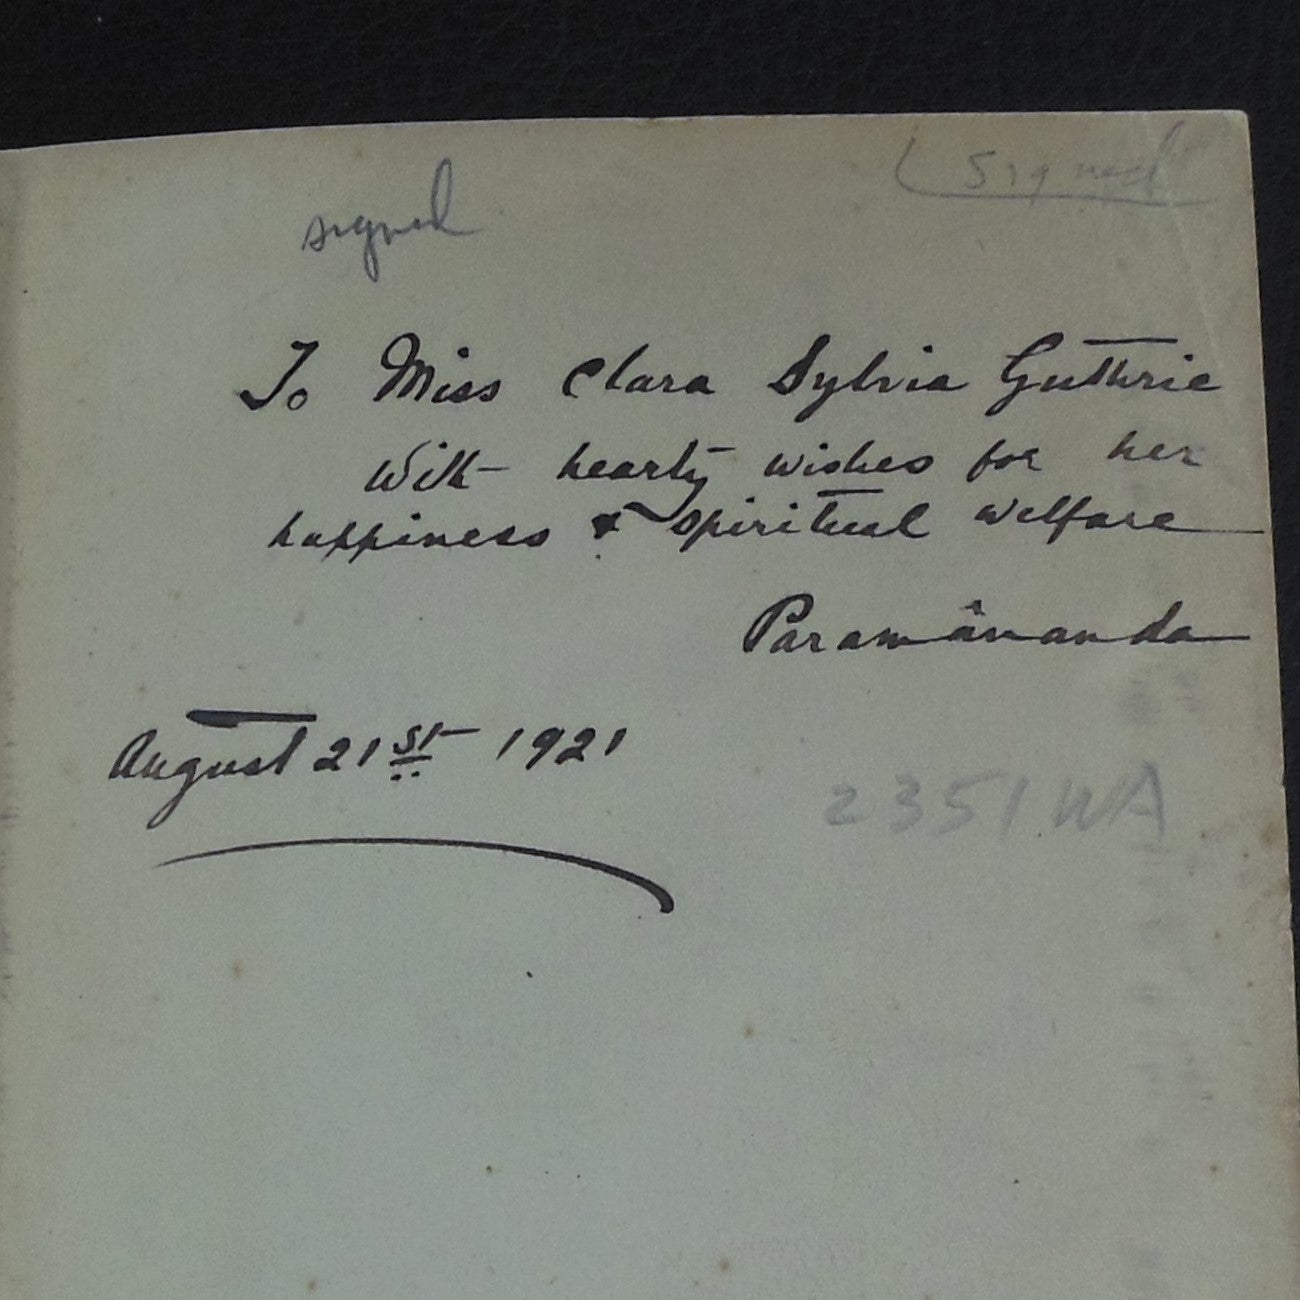 (Signed)
signed
To Miss Clara Sylvia Guthrie
With hearty wishes for her
happiness & spiritual welfare
Paramânanda
August 21st 1921
2351 WA